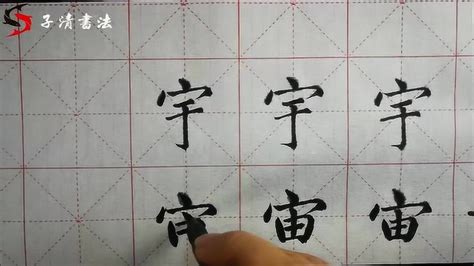 子清书法
宇 宇 宇
宙 宙 宙